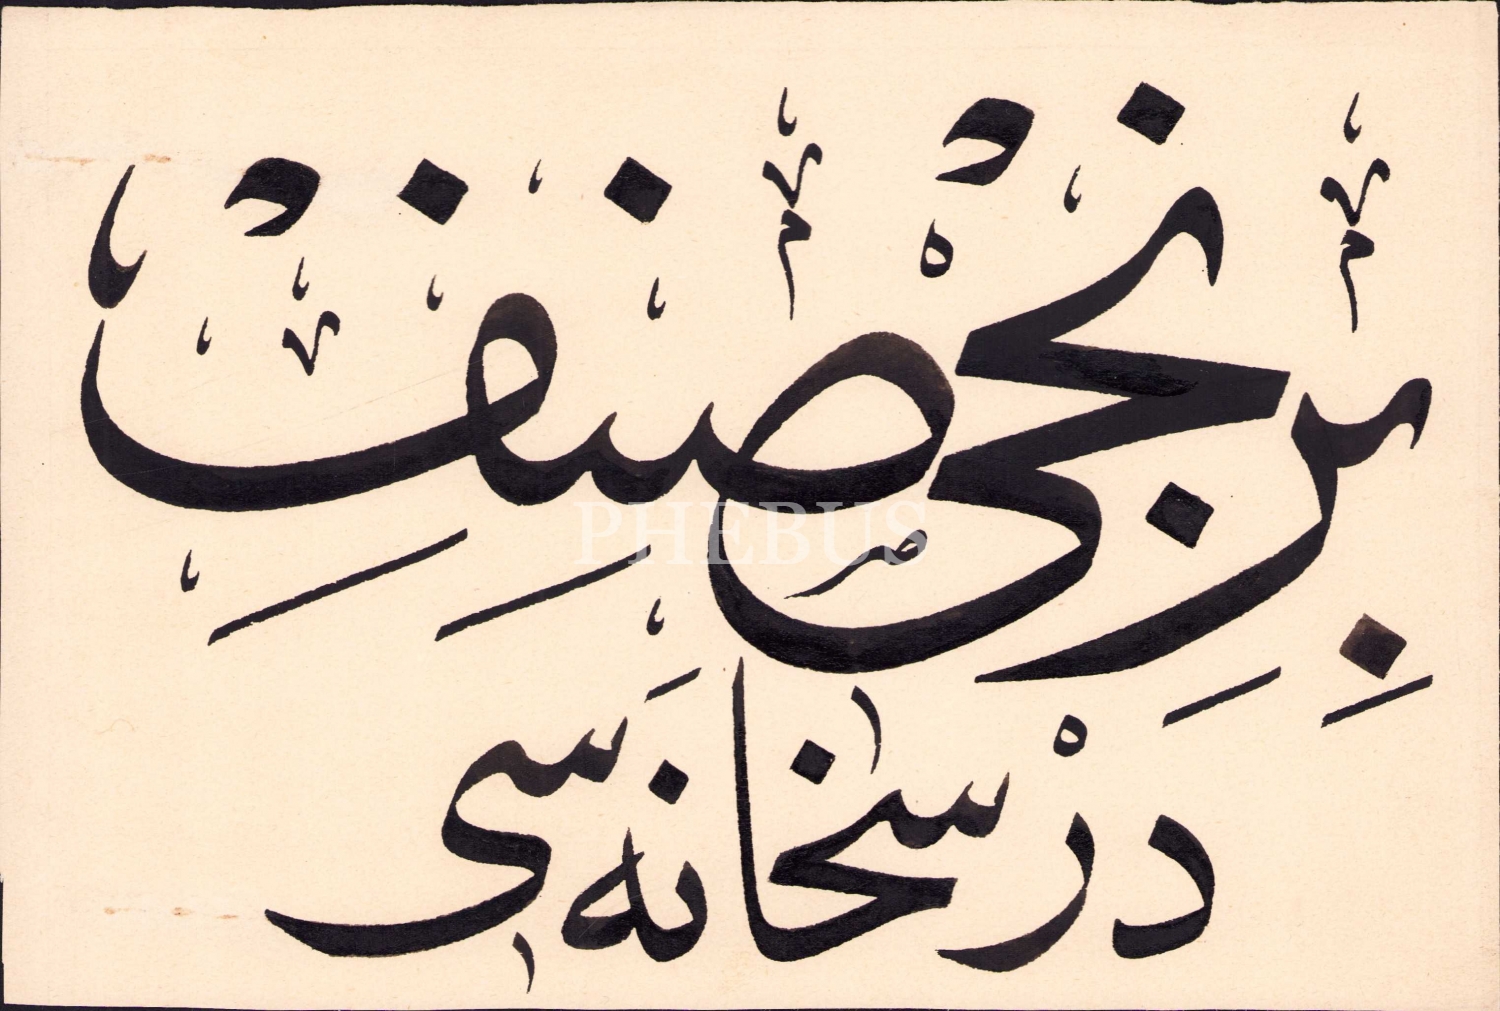 برنجی صنف
درسخانه سی
PHEBUS